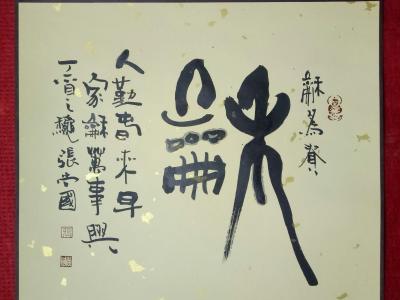 龢為貴
龢
人勤春来早
家龢萬事興
丁酉之 張 國